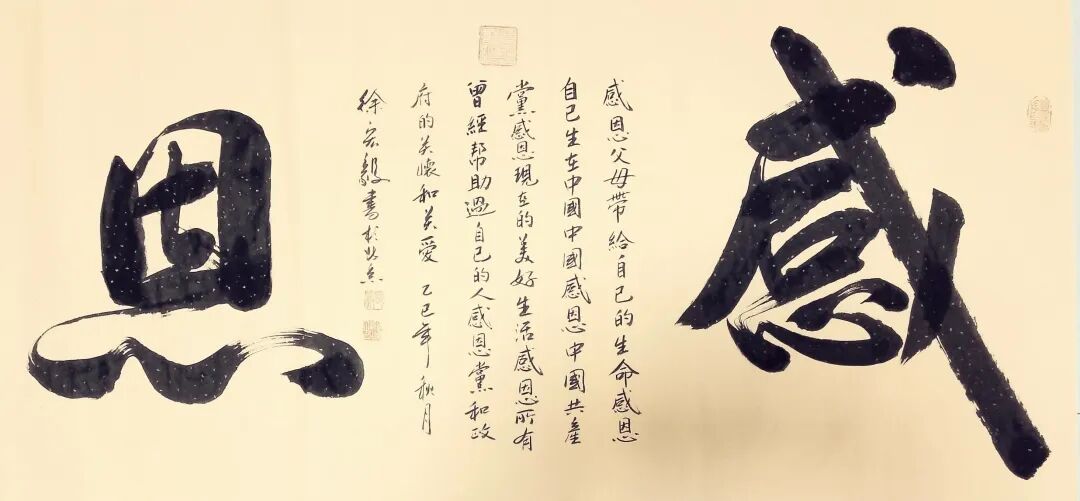 感恩
感恩父母帶給自己的生命感恩
自己生在中國中國感恩中國共產
黨感恩現在的美好生活感恩所有
曾經幫助過自己的人感恩黨和政
府的关懷和关愛 乙巳年秋月
徐宏毅書於